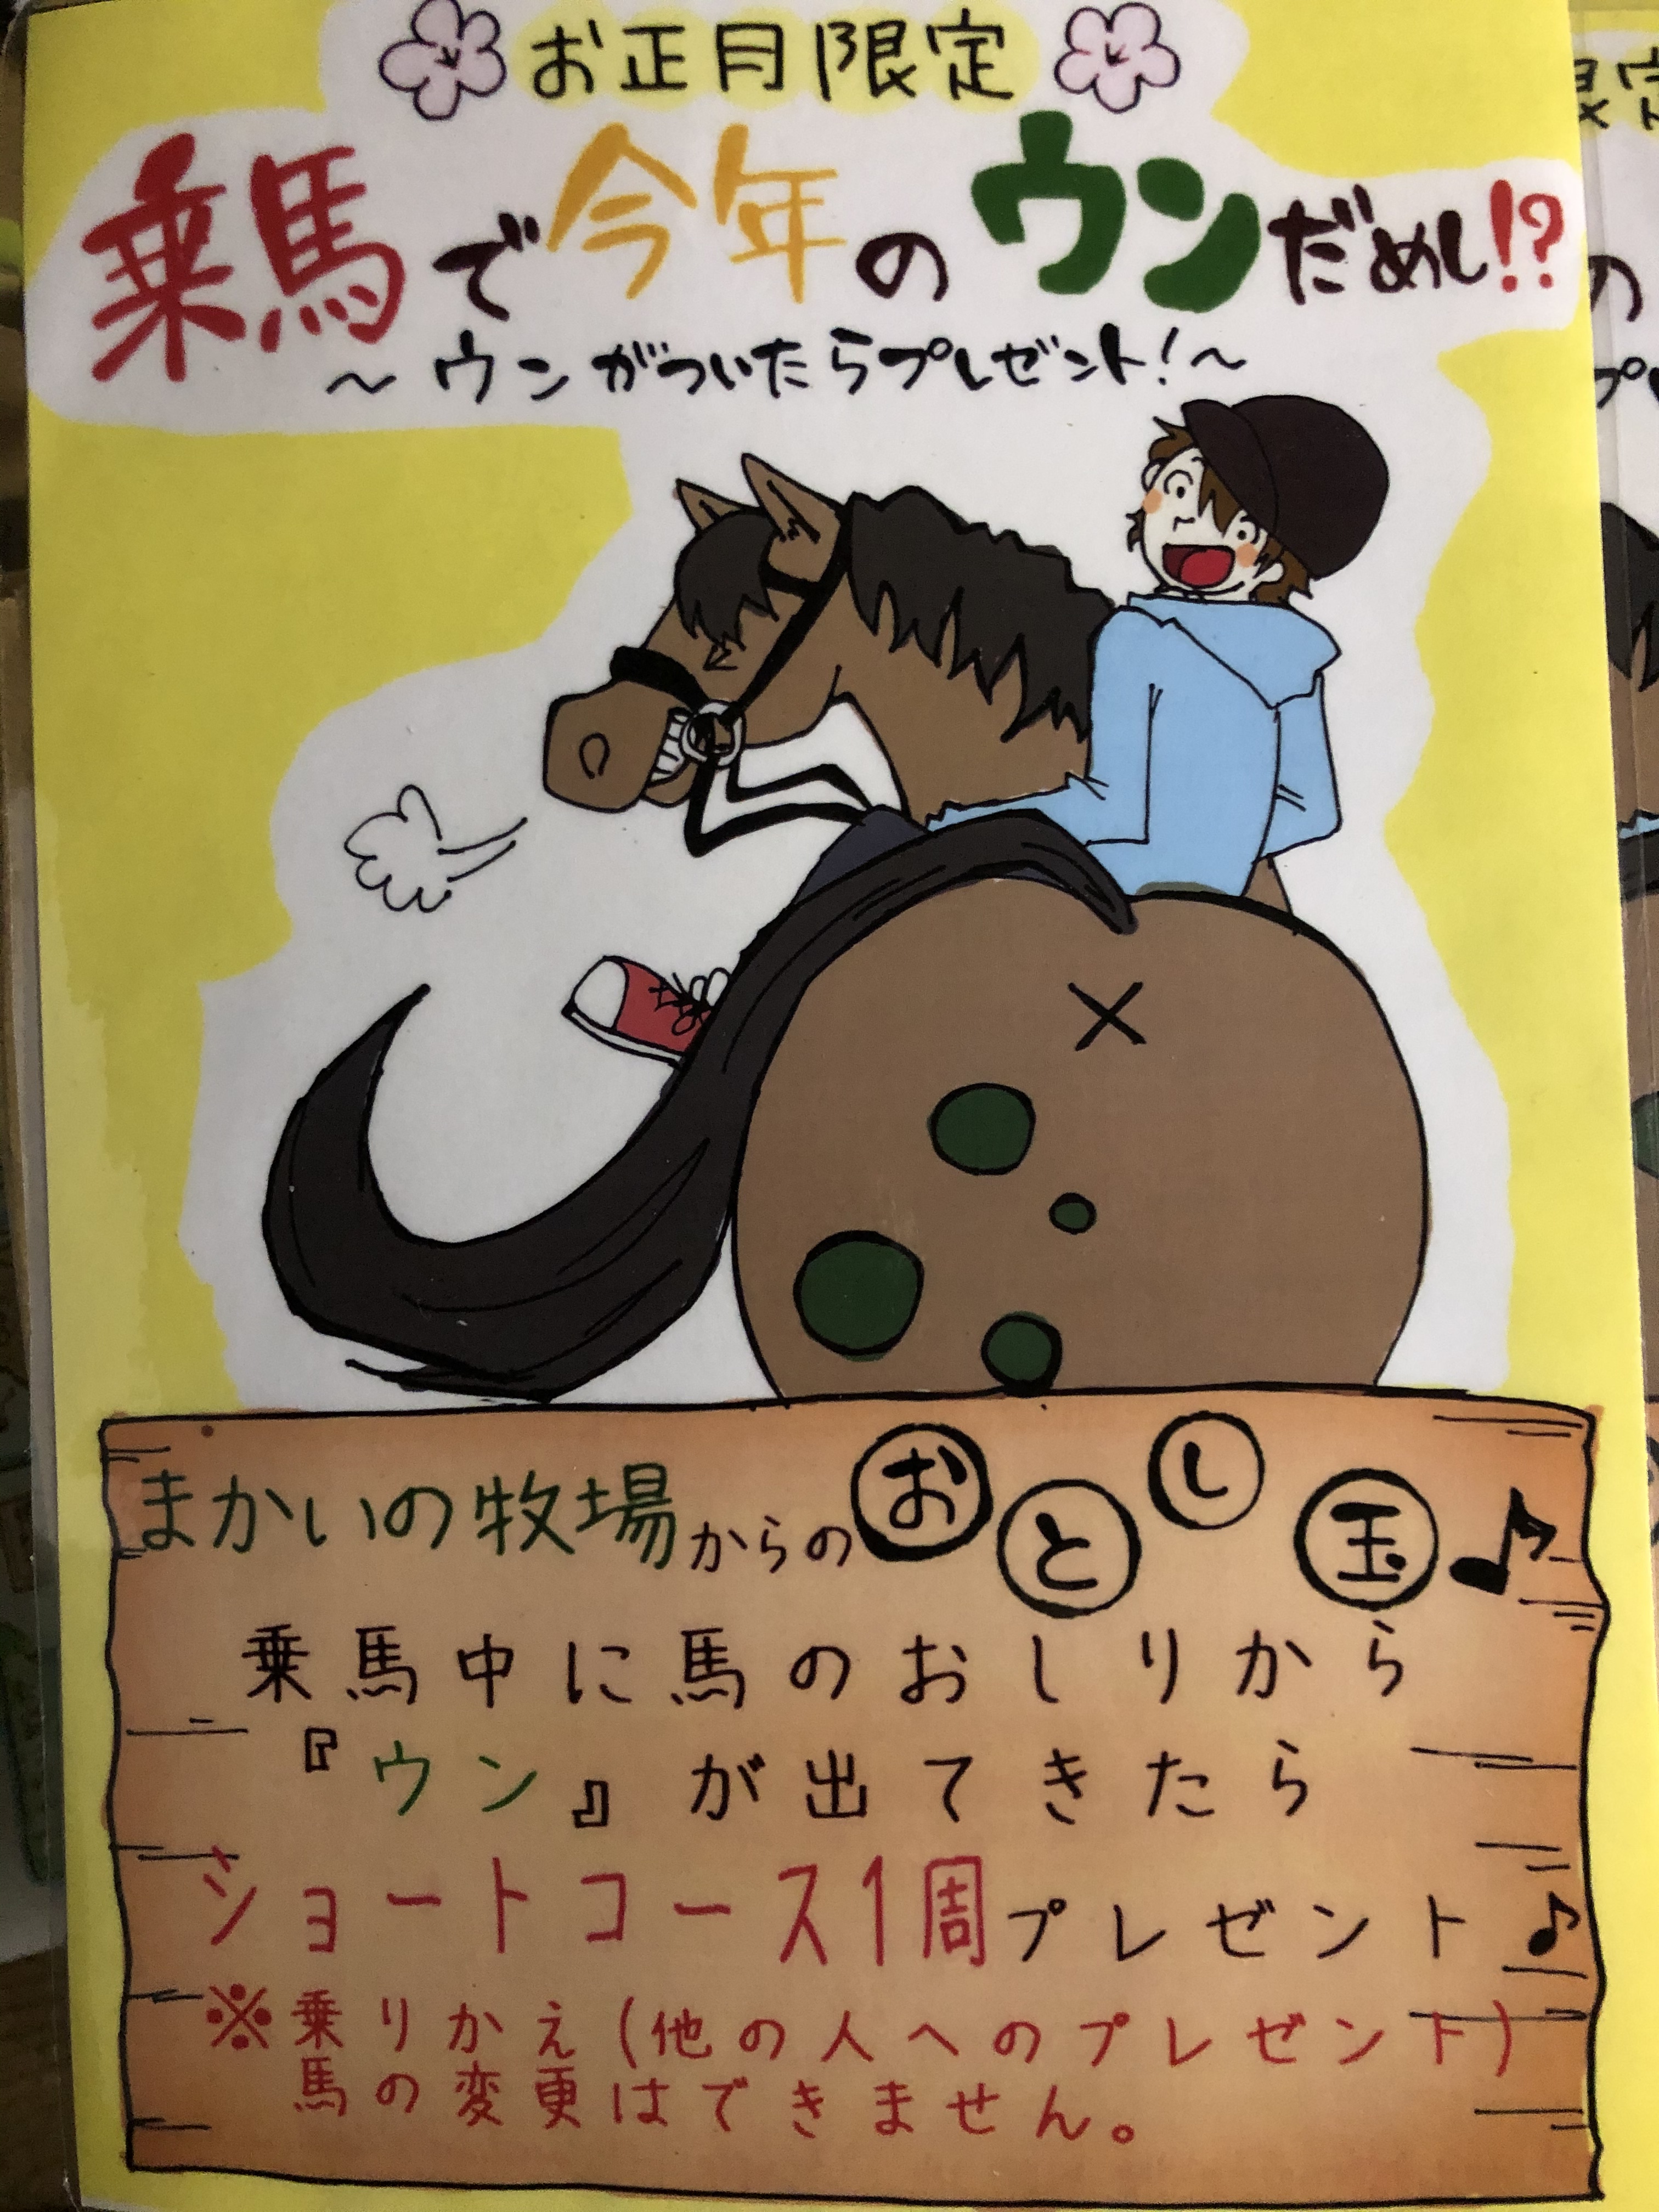 お正月限定
乗馬で今年のウンだめし!?
～ウンがついたらプレゼント!～
まかいの牧場からのおとし玉♪
乗馬中に馬のおしりから
『ウン』が出てきたら
ショートコース1周プレゼント♪
※乗りかえ(他の人へのプレゼント)
馬の変更はできません。